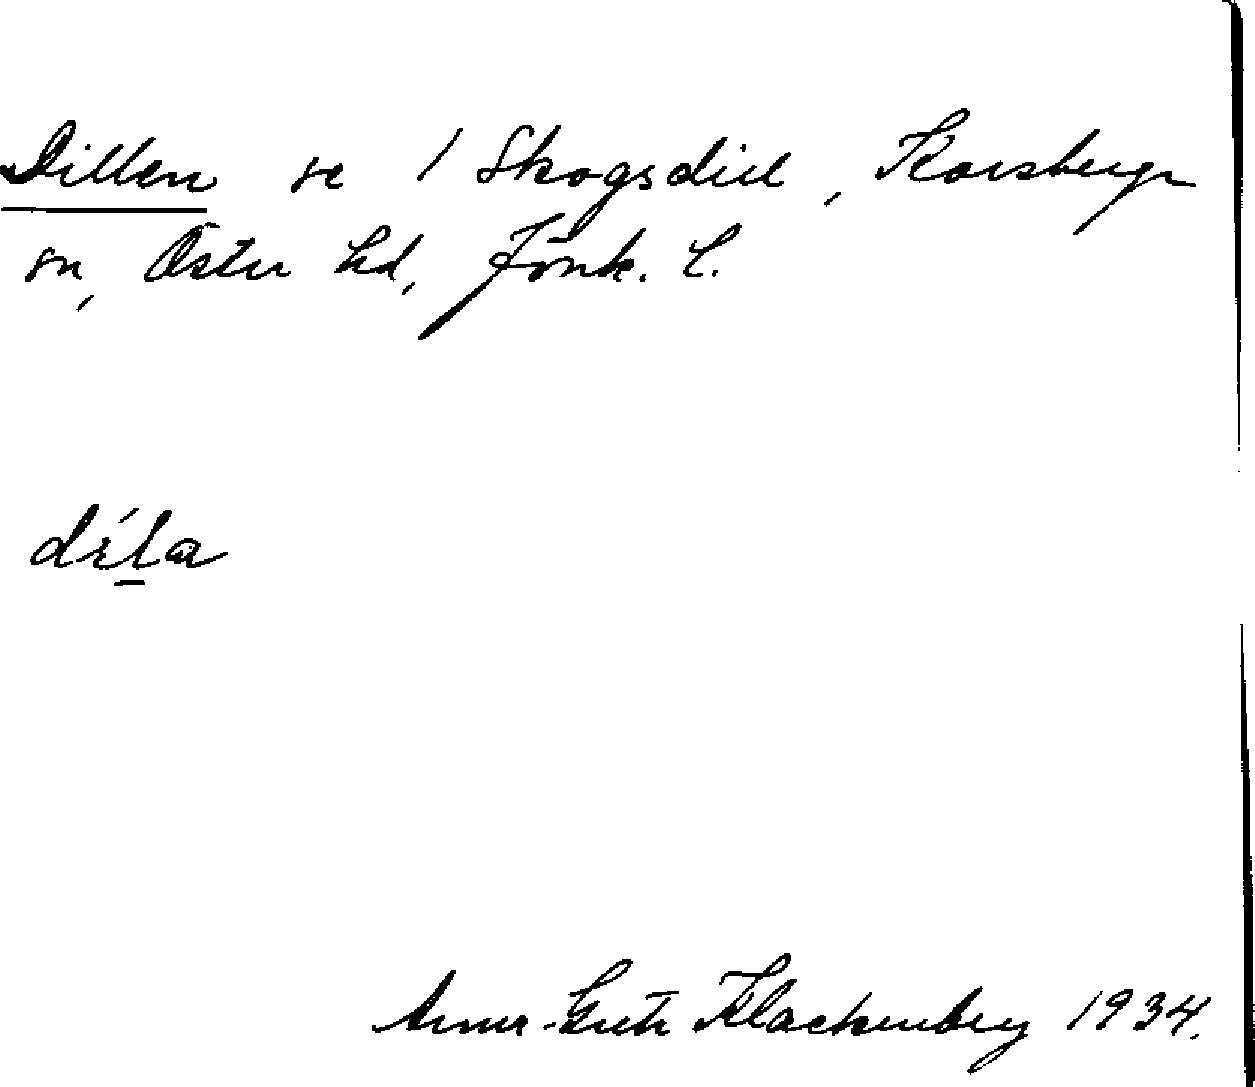 Dillen se 1 Skogsdill, Korsberga
sn, Östra hd, Jönk. l.
díla
Anna-Greta Klackenberg 1934.